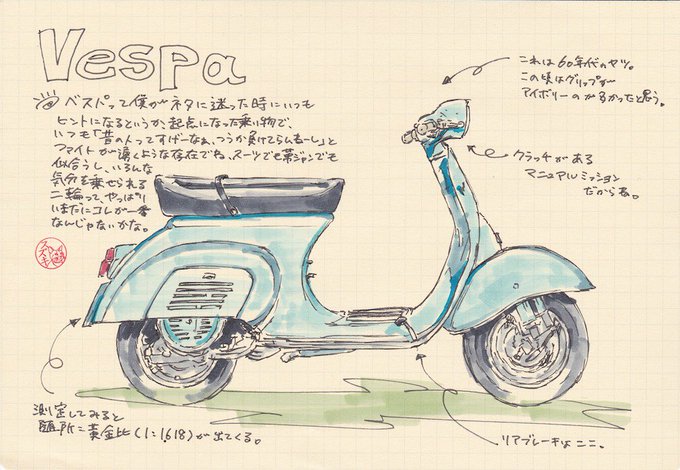 Vespa
ベスパって僕がネタに迷った時にいつも
ヒントになるというか、起点になった乗り物で、
いつも「昔の人ってすげーなぁ、つうか負けてらんねーし」と
ファイトが湧くような存在でね。スーツでも革ジャンでも
似合うし、いろんな
気分を乗せられる
二輪って、やっぱり
いまだにコレが一番
なんじゃないかな。
スズキ
これは60年代のヤツ。
この頃はグリップが
アイボリーのがあるかったと思う。
クラッチがある
マニュアルミッション
だからね。
測定してみると
随所に黄金比(1:1.618)が出てくる。
リアブレーキはココ。